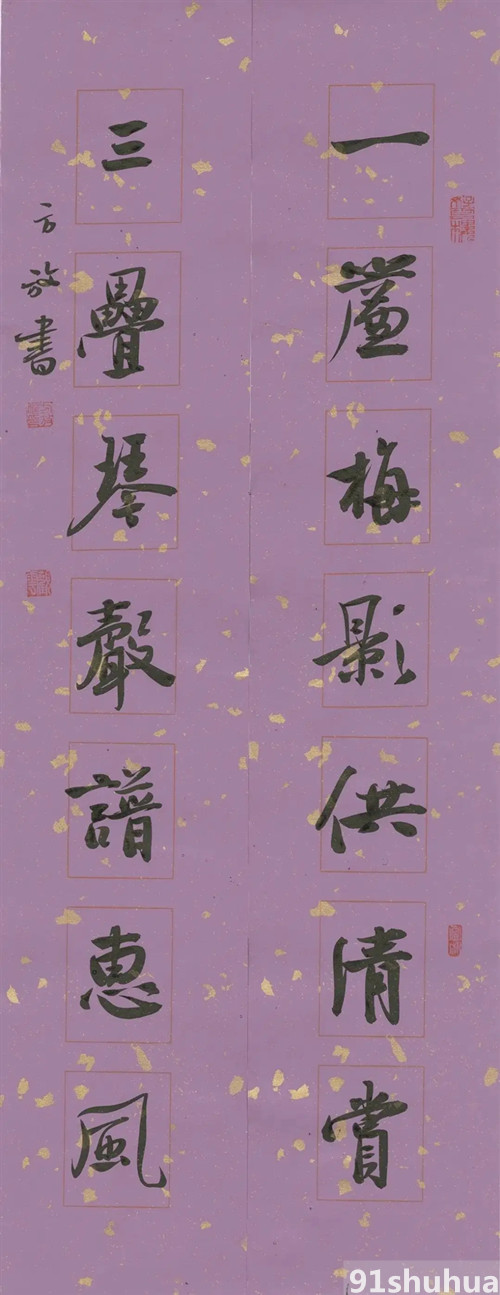 一簾梅影供清賞
三疊琴聲譜惠風
方放書
91shuhua